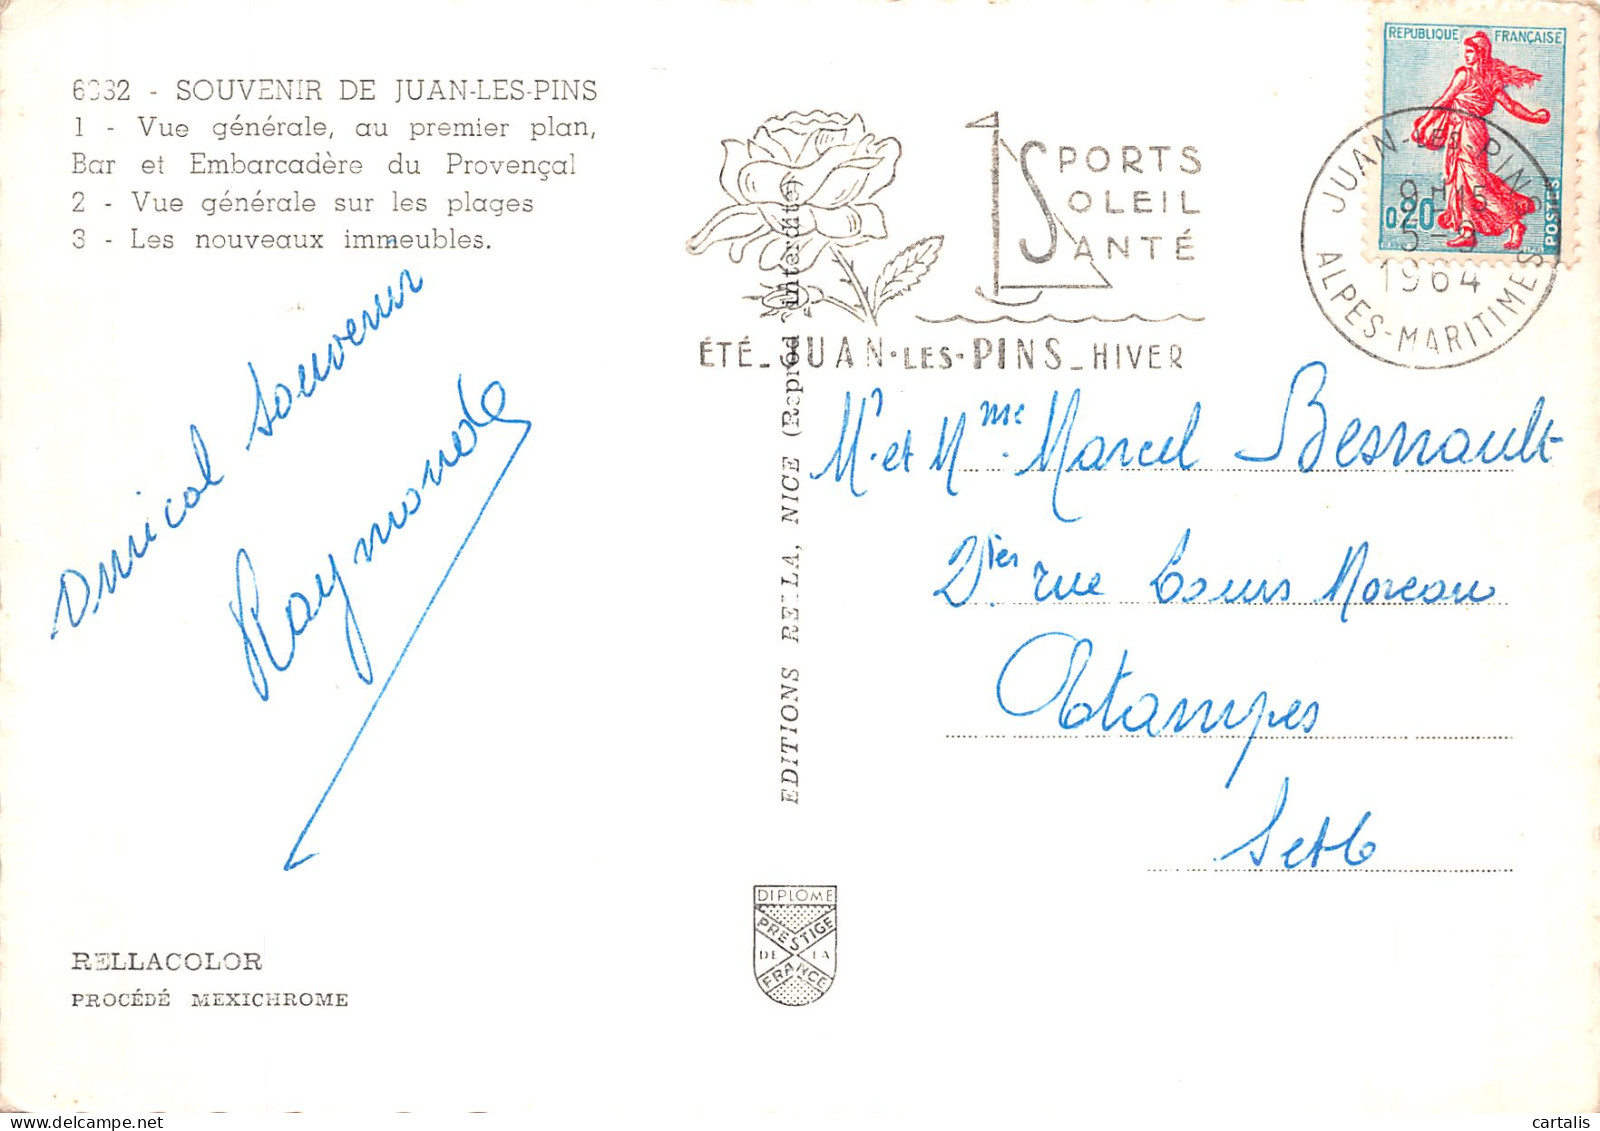 6332 - SOUVENIR DE JUAN-LES-PINS
1 - Vue générale, au premier plan,
Bar et Embarcadère du Provençal
2 - Vue générale sur les plages
3 - Les nouveaux immeubles.
Amical Souvenir
Raymonde
RELLACOLOR
PROCÉDÉ MEXICHROME
EDITIONS RELLA, NICE (Reprod. interdite)
DIPLOME
PRESTIGE
DE LA
FRANCE
SPORTS
SOLEIL
SANTÉ
ÉTÉ_JUAN·LES·PINS_HIVER
REPUBLIQUE FRANÇAISE
0,20
POSTES
JUAN-LES-PINS
9H15
5-9
1964
ALPES-MARITIMES
Mr et Mme Marcel Besnault
2 ter rue Louis Moreau
Etampes
S et O
cartalis